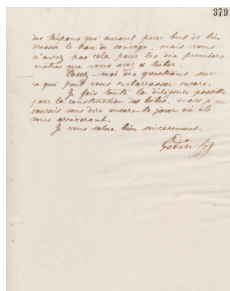 379
des trépans qui auront pour but de bien
dresser le trou de sondage, mais vous
n'aurez pas cela pour les dix premiers
mètres que vous avez à tuber.
Posez-moi des questions sur
ce qui peut vous embarrasser encore.
Je fais toute la diligence possible
pour la construction des tubes, mais je ne
saurais vous dire encore le jour où ils
vous arriveront.
Je vous salue bien sincèrement.
Godin